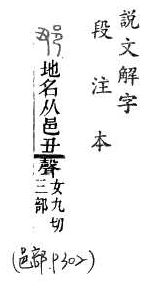 說文解字
段注本
地名从邑丑聲女九切
三部
(邑部.P302)